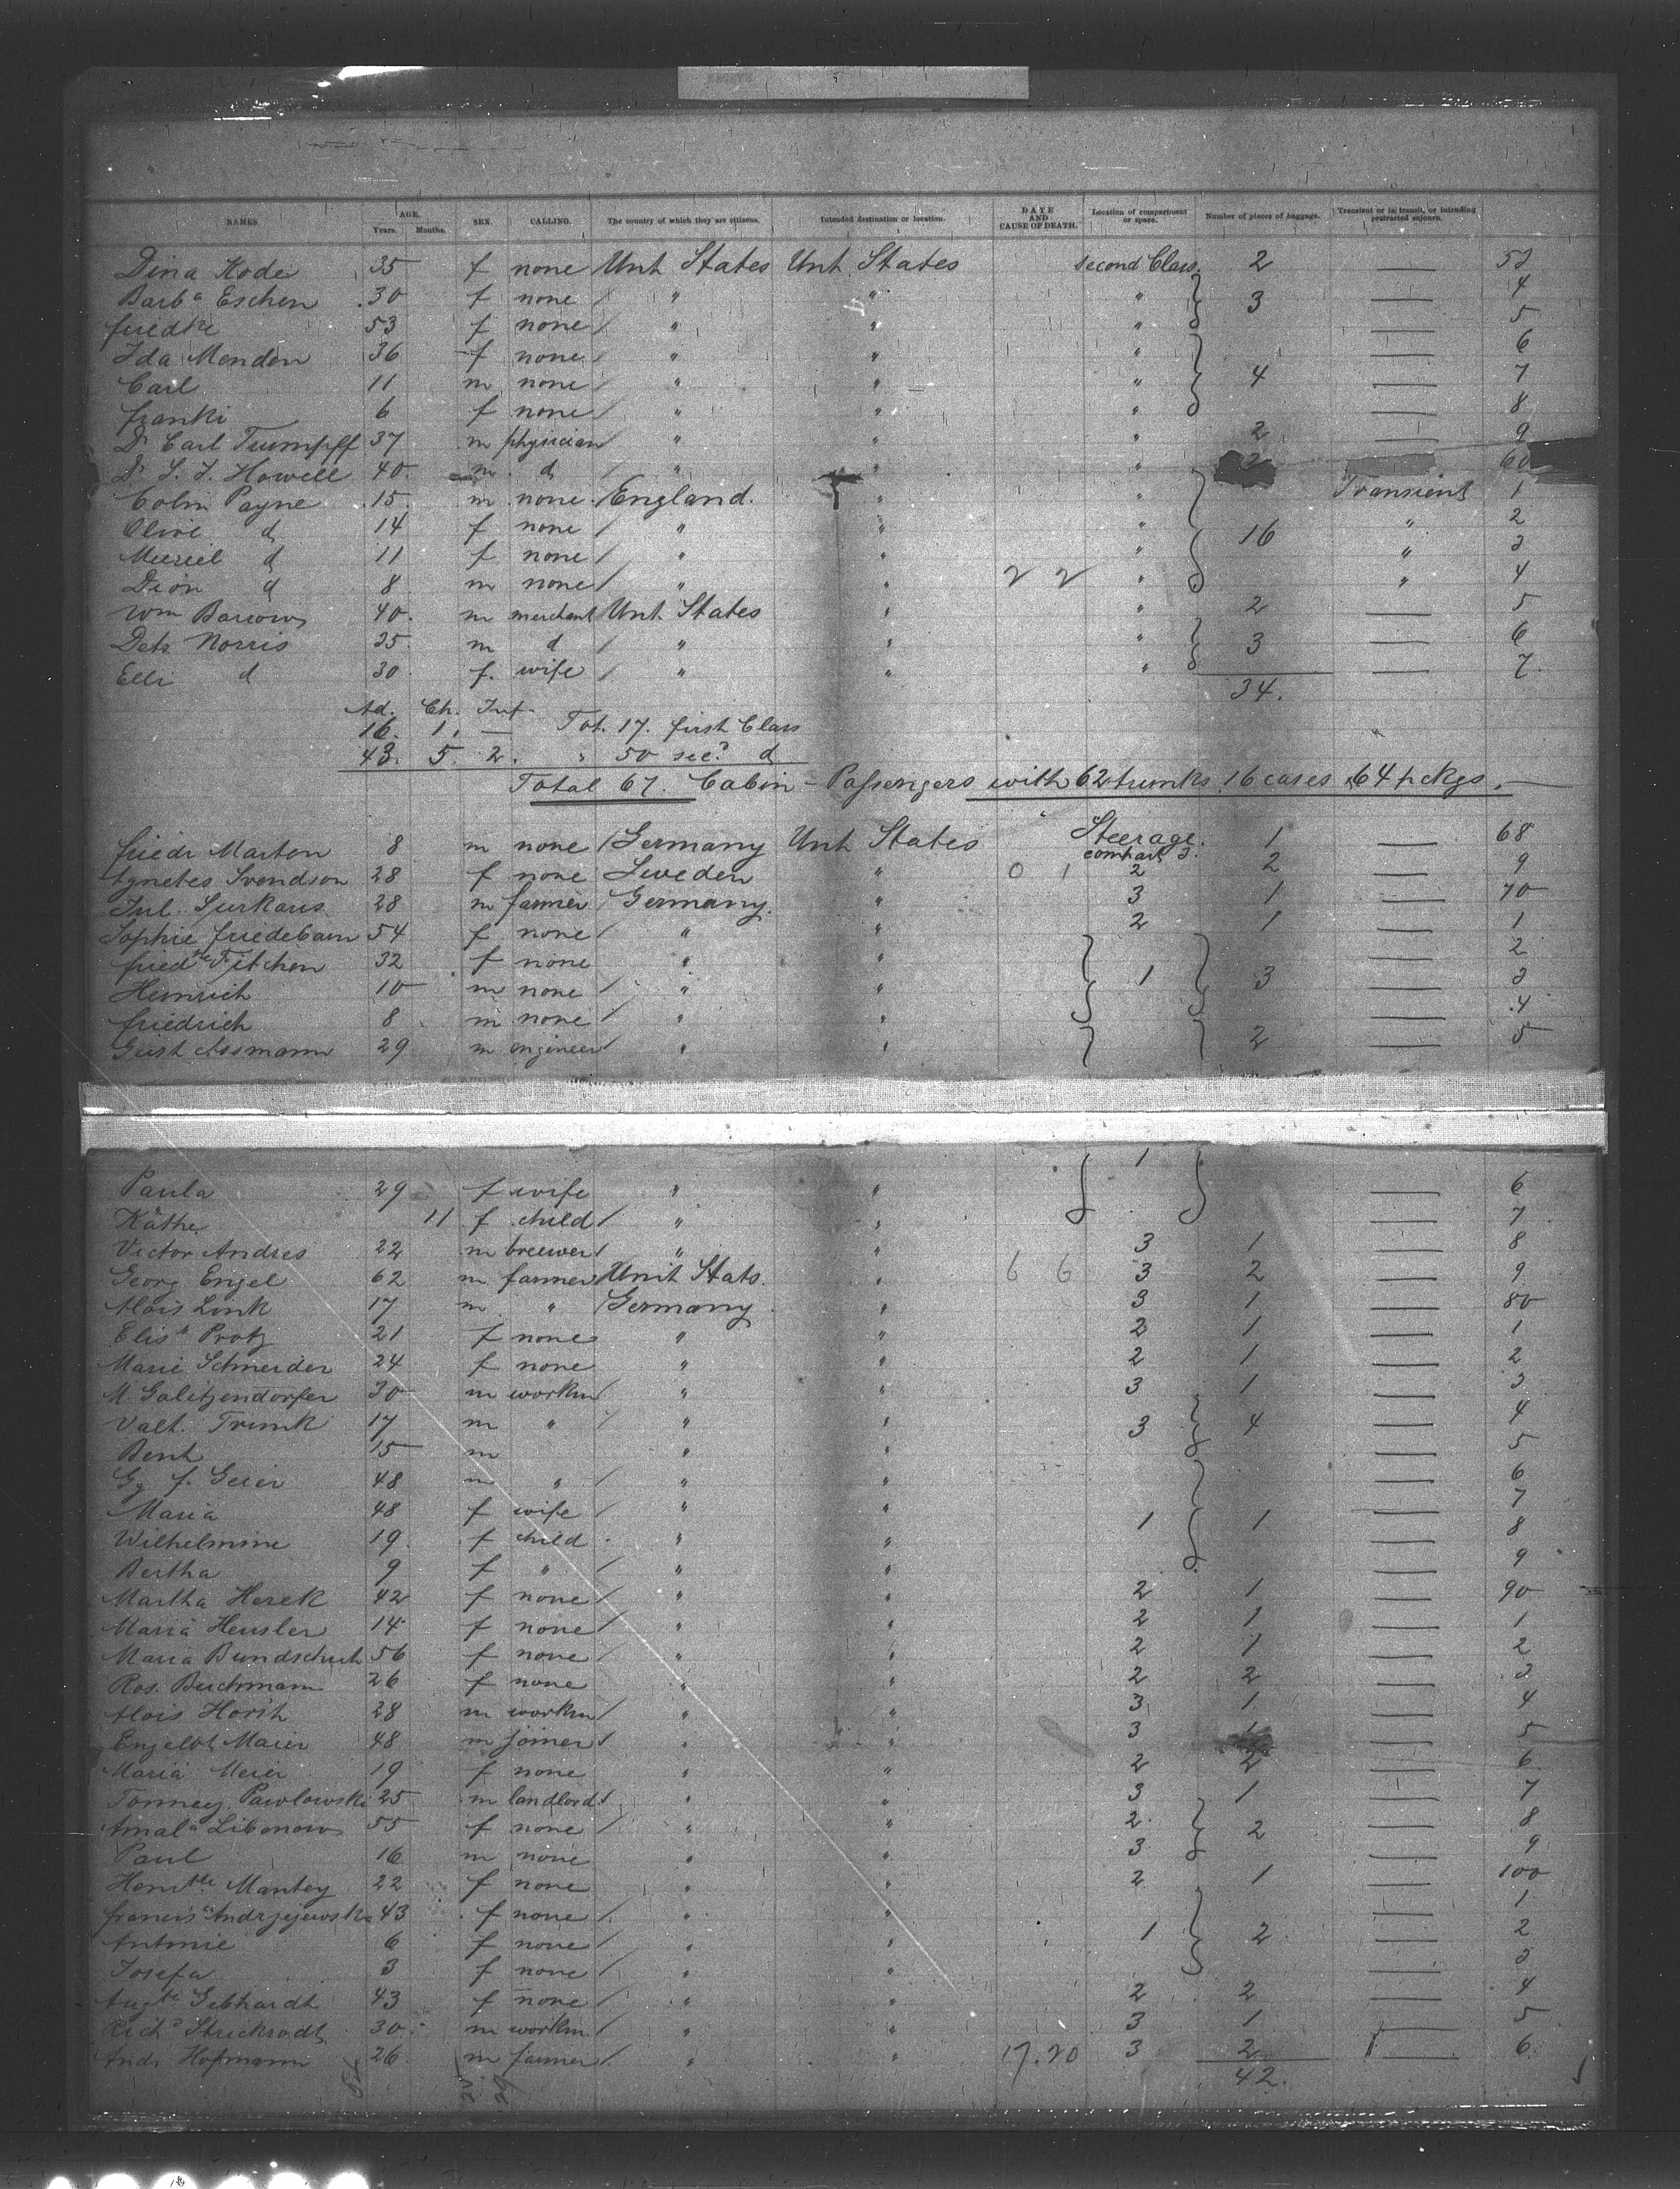 NAMES AGE. Years. Months. SEX. CALLING. The country of which they are citizens. Intended destination or location. DATE AND CAUSE OF DEATH. Location of compartment or space. Number of pieces of baggage. Transient or in transit, or intending protracted sojourn.
Dina Kode 35 f none Unit States Unit. States second Class. 2 — 53
Barba Eschen 30 f none / " " " 3 — 4
friedke 53 f none / " " " — 5
Ida Menden 36 f none / " " " — 6
Carl 11 m none / " " " 4 — 7
franki 6 f none / " " " — 8
Dr Carl Trumpff 37 m physician / " " " 2 — 9
Dr L. J. Howell 40 m d / " " " 60
Colin Payne 15 m none England. " " Transient 1
Olive d 14 f none / " " " 16 " 2
Muriel d 11 f none / " " " " 3
Dion d 8 m none / " " 2 2 " " 4
Wm Barrows 40 m merchant Unit. States " 2 — 5
Detr Norris 25 m d / " " " 3 — 6
Elli d 30 f. wife / " " " — 7.
34.
Ad. Ch. Inf.
16. 1. — Tot. 17. first Class
43. 5. 2. " 50 secd d
Total 67. Cabin - Passengers with 62 trunks 16 cases 64 pckgs. —
friedr Marten 8 m none / Germany Unit States Steerage. compart 3. 1 — 68
Agnetes Svendson 28 f none Sweden " 0 1 2 2 — 9
Jul. Surkaus 28 m farmer / Germany. " 3 1 — 70
Sophie friedebaum 54 f none / " " 2 1 — 1
friedke Titchen 32 f none " " — 2
Heinrich 10 m none / " " 1 3 — 3
friedrich 8 m none / " " — 4
Gust Assmann 29 m engineer / " " 2 — 5
Paula 29 f wife " " 1 — 6
Käthe 11 f child / " " — 7
Victor Andres 22 m brewer / " " 3 1 — 8
Georg Engel 62 m farmer Unit Stats. " 6 6 3 2 — 9
Alois Link 17 m " / Germany " 3 1 — 80
Elisth Protz 21 f none " " 2 1 — 1
Marie Schneider 24 f none " " 2 1 — 2
M. Galitzendorfer 30 m workm / " " 3 1 — 3
Valt. Trunk 17 m " / " " 3 4 — 4
Bent 15 m " " — 5
Gg f. Geier 48 m " / " " — 6
Maria 48 f wife / " " — 7
Wilhelmine 19 f child " " 1 1 — 8
Bertha 9 f " / " " — 9
Martha Herek 42 f none / " " 2 1 — 90
Maria Heusler 14 f none / " " 2 1 — 1
Maria Bundschuh 56 f none / " " 2 1 — 2
Ros. Buchmann 26 f none " " 2 2 — 3
Alois Horsh 28 m workm / " " 3 1 — 4
Engelbt Maier 48 m joiner / " " 3 1 — 5
Maria Meier 19 f none " " 2 2 — 6
Tonney Pawlowski 25 m landlord / " " 3 1 — 7
Amala Libenow 55 f none / " " 2 2 — 8
Paul 16 m none " " 3 — 9
Henrtte Mantey 22 f none " " 2 1 — 100
francisa Andrzejewska 43 f none / " " — 1
Antonie 6 f none / " " 1 2 — 2
Josefa 3 f none / " " — 3
Augte Gebhardt 43 f none / " " 2 2 — 4
Richd Strickrodt 30 m workm. / " " 3 1 — 5
Andr Hofmann 26 m farmer / " " 17.20 3 2 — 6
42.